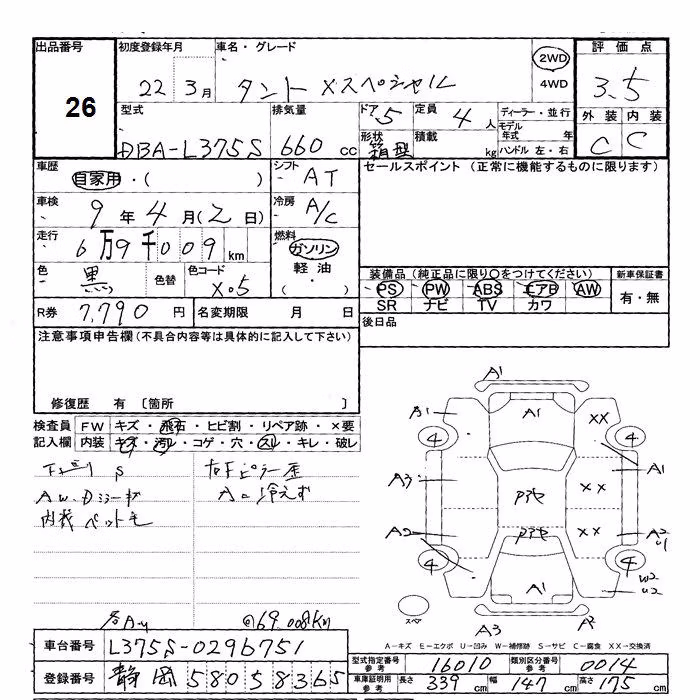 出品番号 初度登録年月 車名・グレード 評価点
26 22 3月 タント Xスペシャル 2WD 4WD 3.5
型式 排気量 ドア 5 定員 4人 ディーラー・並行 外装 内装
DBA-L375S 660cc 形状 箱型 積載 kg モデル年式 年 ハンドル 左・右 C C
車歴 自家用・( ) シフト AT セールスポイント (正常に機能するものに限ります)
車検 9年4月(2日) 冷房 A/C
走行 6万9千009km 燃料 ガソリン
軽油・( )
色 黒 色替 色コード X05 装備品 (純正品に限り○をつけてください) 新車保証書
PS PW ABS エアB AW 有・無
SR ナビ TV カワ
R券 7,790円 名変期限 月 日 後日品
注意事項申告欄(不具合内容等は具体的に記入して下さい)
修復歴 有 〔箇所 〕
検査員 FW キズ・飛石・ヒビ割・リペア跡・×要
記入欄 内装 キズ・汚レ・コゲ・穴・スレ・キレ・破レ
S
内装 ペット毛
冷えず
69.008km
A1
A1 A1 XX
4 4
A3 A1
XX
XX
A2 A2 U1
4 4
A1 W2 U2
スペア
A3 A2
A-キズ E-エクボ U-凹み W-補修跡 S-サビ C-腐食 XX-交換済
車台番号 L375S-0296751
登録番号 静岡 580 5 8365
型式指定番号 参考 16010 類別区分番号 参考 0014
車庫証明用 参考 長さ 339cm 幅 147cm 高さ 175cm